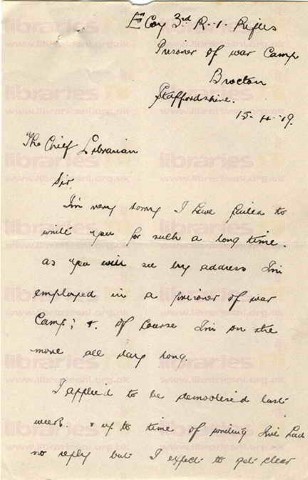 E Coy 3rd R.I. Rifles
Prisoner of war Camp
Brocton
Staffordshire.
15-4-19.
The Chief Librarian
Sir.
I'm very sorry I have failed to
write you for such a long time.
as you will see by address I'm
employed in a prisoner of war
Camp; &. of course I'm on the
move all day long.
I applied to be demobilised last
week. & up to time of I've had
no reply but I expect to get clear
libraries